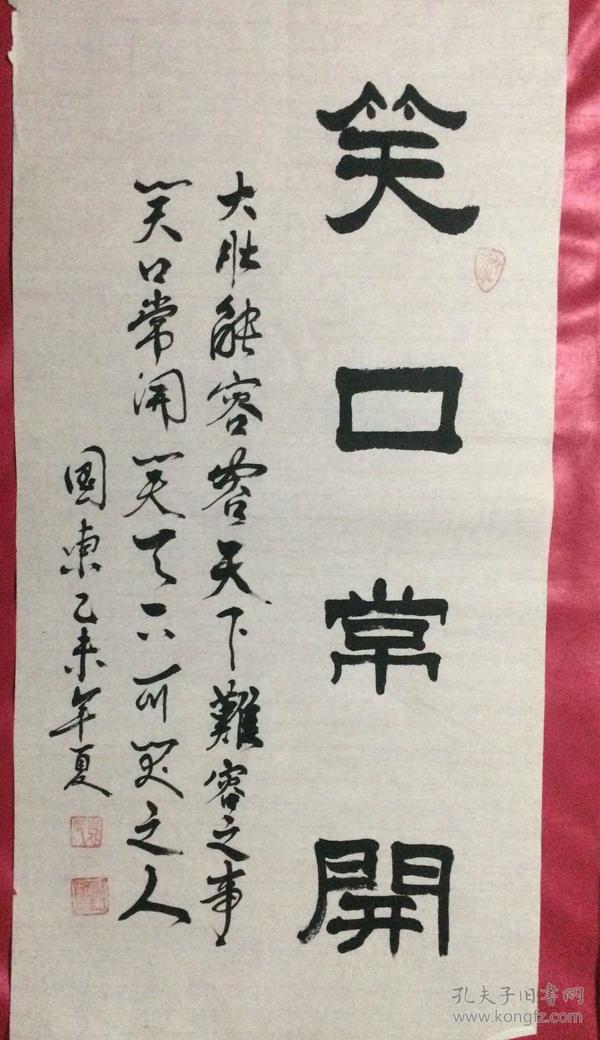 笑口常開
大肚能容容天下難容之事
笑口常开笑天下可笑之人
国東乙未年夏
孔夫子旧書网
www.kongfz.com